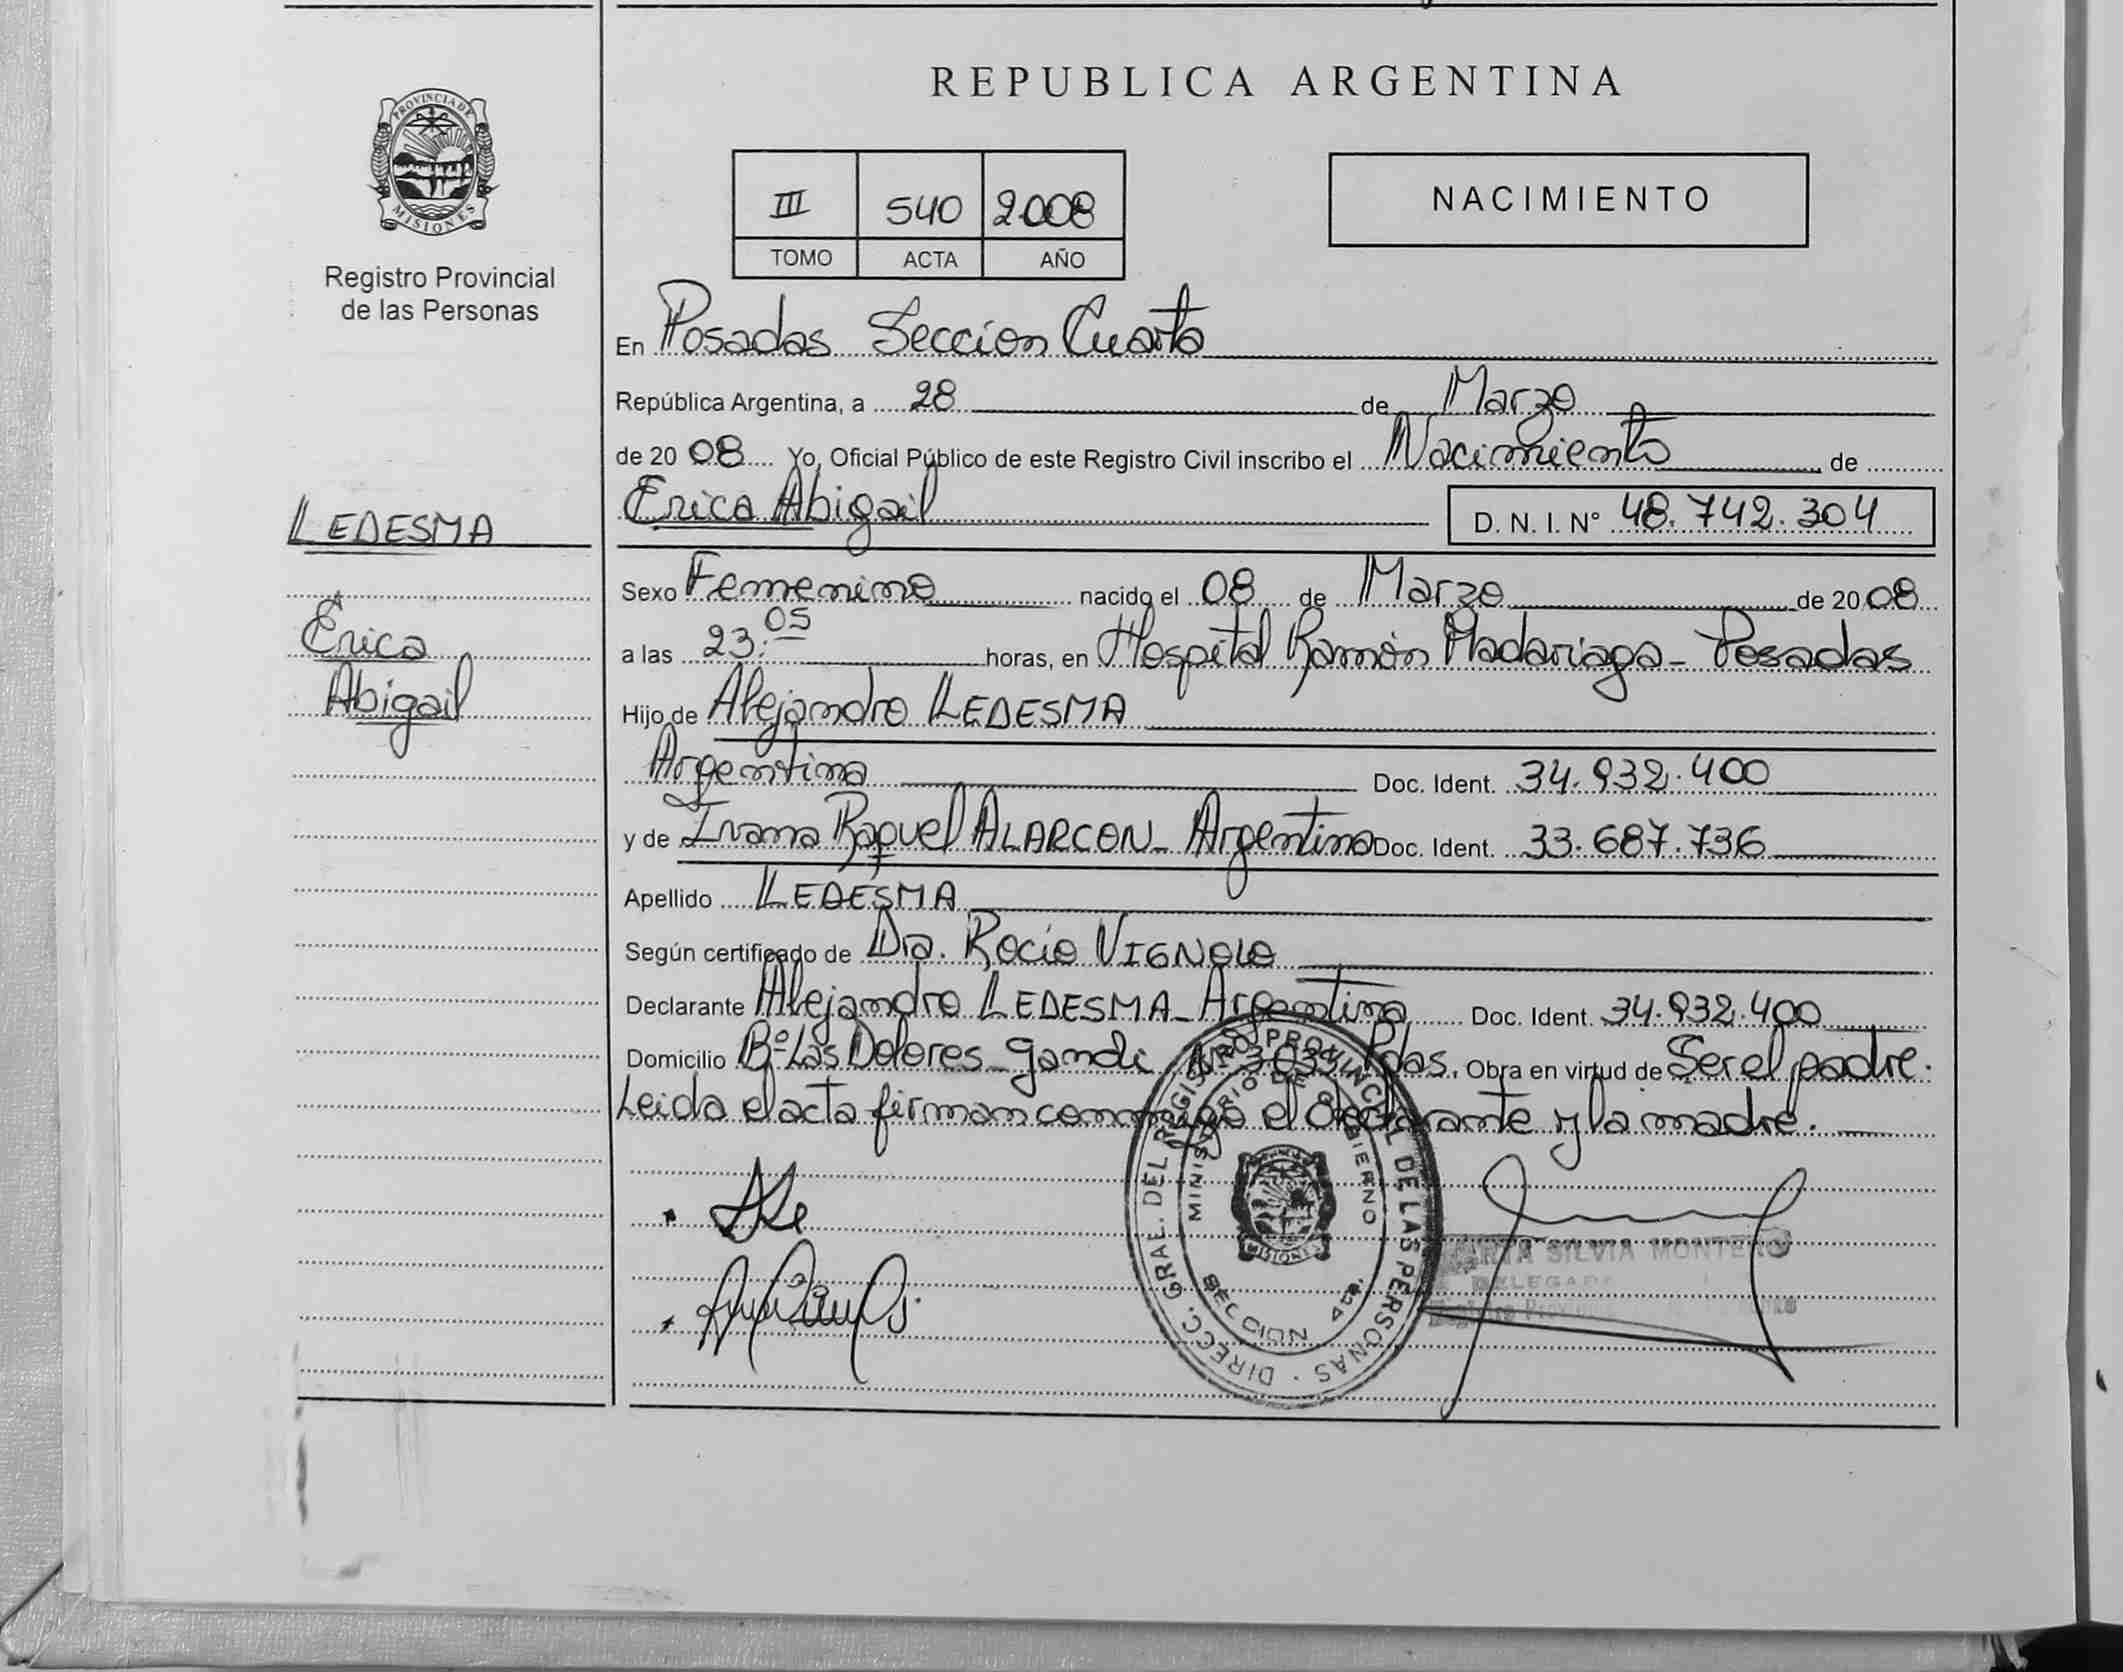 REPUBLICA ARGENTINA
PROVINCIA DE
MISIONES
Registro Provincial
de las Personas
III 540 2008
TOMO ACTA AÑO
NACIMIENTO
En Posadas Seccion Cuarta
República Argentina, a 28 de Marzo
de 2008 Yo, Oficial Público de este Registro Civil inscribo el Nacimiento de
LEDESMA
Erica
Abigail
Erica Abigail D. N. I. N° 48.742.304
Sexo Femenino nacido el 08 de Marzo de 2008
a las 23:05 horas, en Hospital Ramón Madariaga - Posadas
Hijo de Alejandro LEDESMA
Argentina Doc. Ident. 34.932.400
y de Ivana Raquel ALARCON - Argentina Doc. Ident. 33.687.736
Apellido LEDESMA
Según certificado de Dra. Rocio VIGNOLO
Declarante Alejandro LEDESMA - Argentina Doc. Ident. 34.932.400
Domicilio Bº Las Dolores - Gandi N° 3035 Pdas. Obra en virtud de Ser el padre.
Leida el acta firman conmigo el declarante y la madre.
DIRECC. GRAL. DEL REGISTRO PROVINCIAL DE LAS PERSONAS
MINISTERIO DE GOBIERNO
MISIONES
SECCION 4ta.
SILVIA MONTERO
DELEGADA